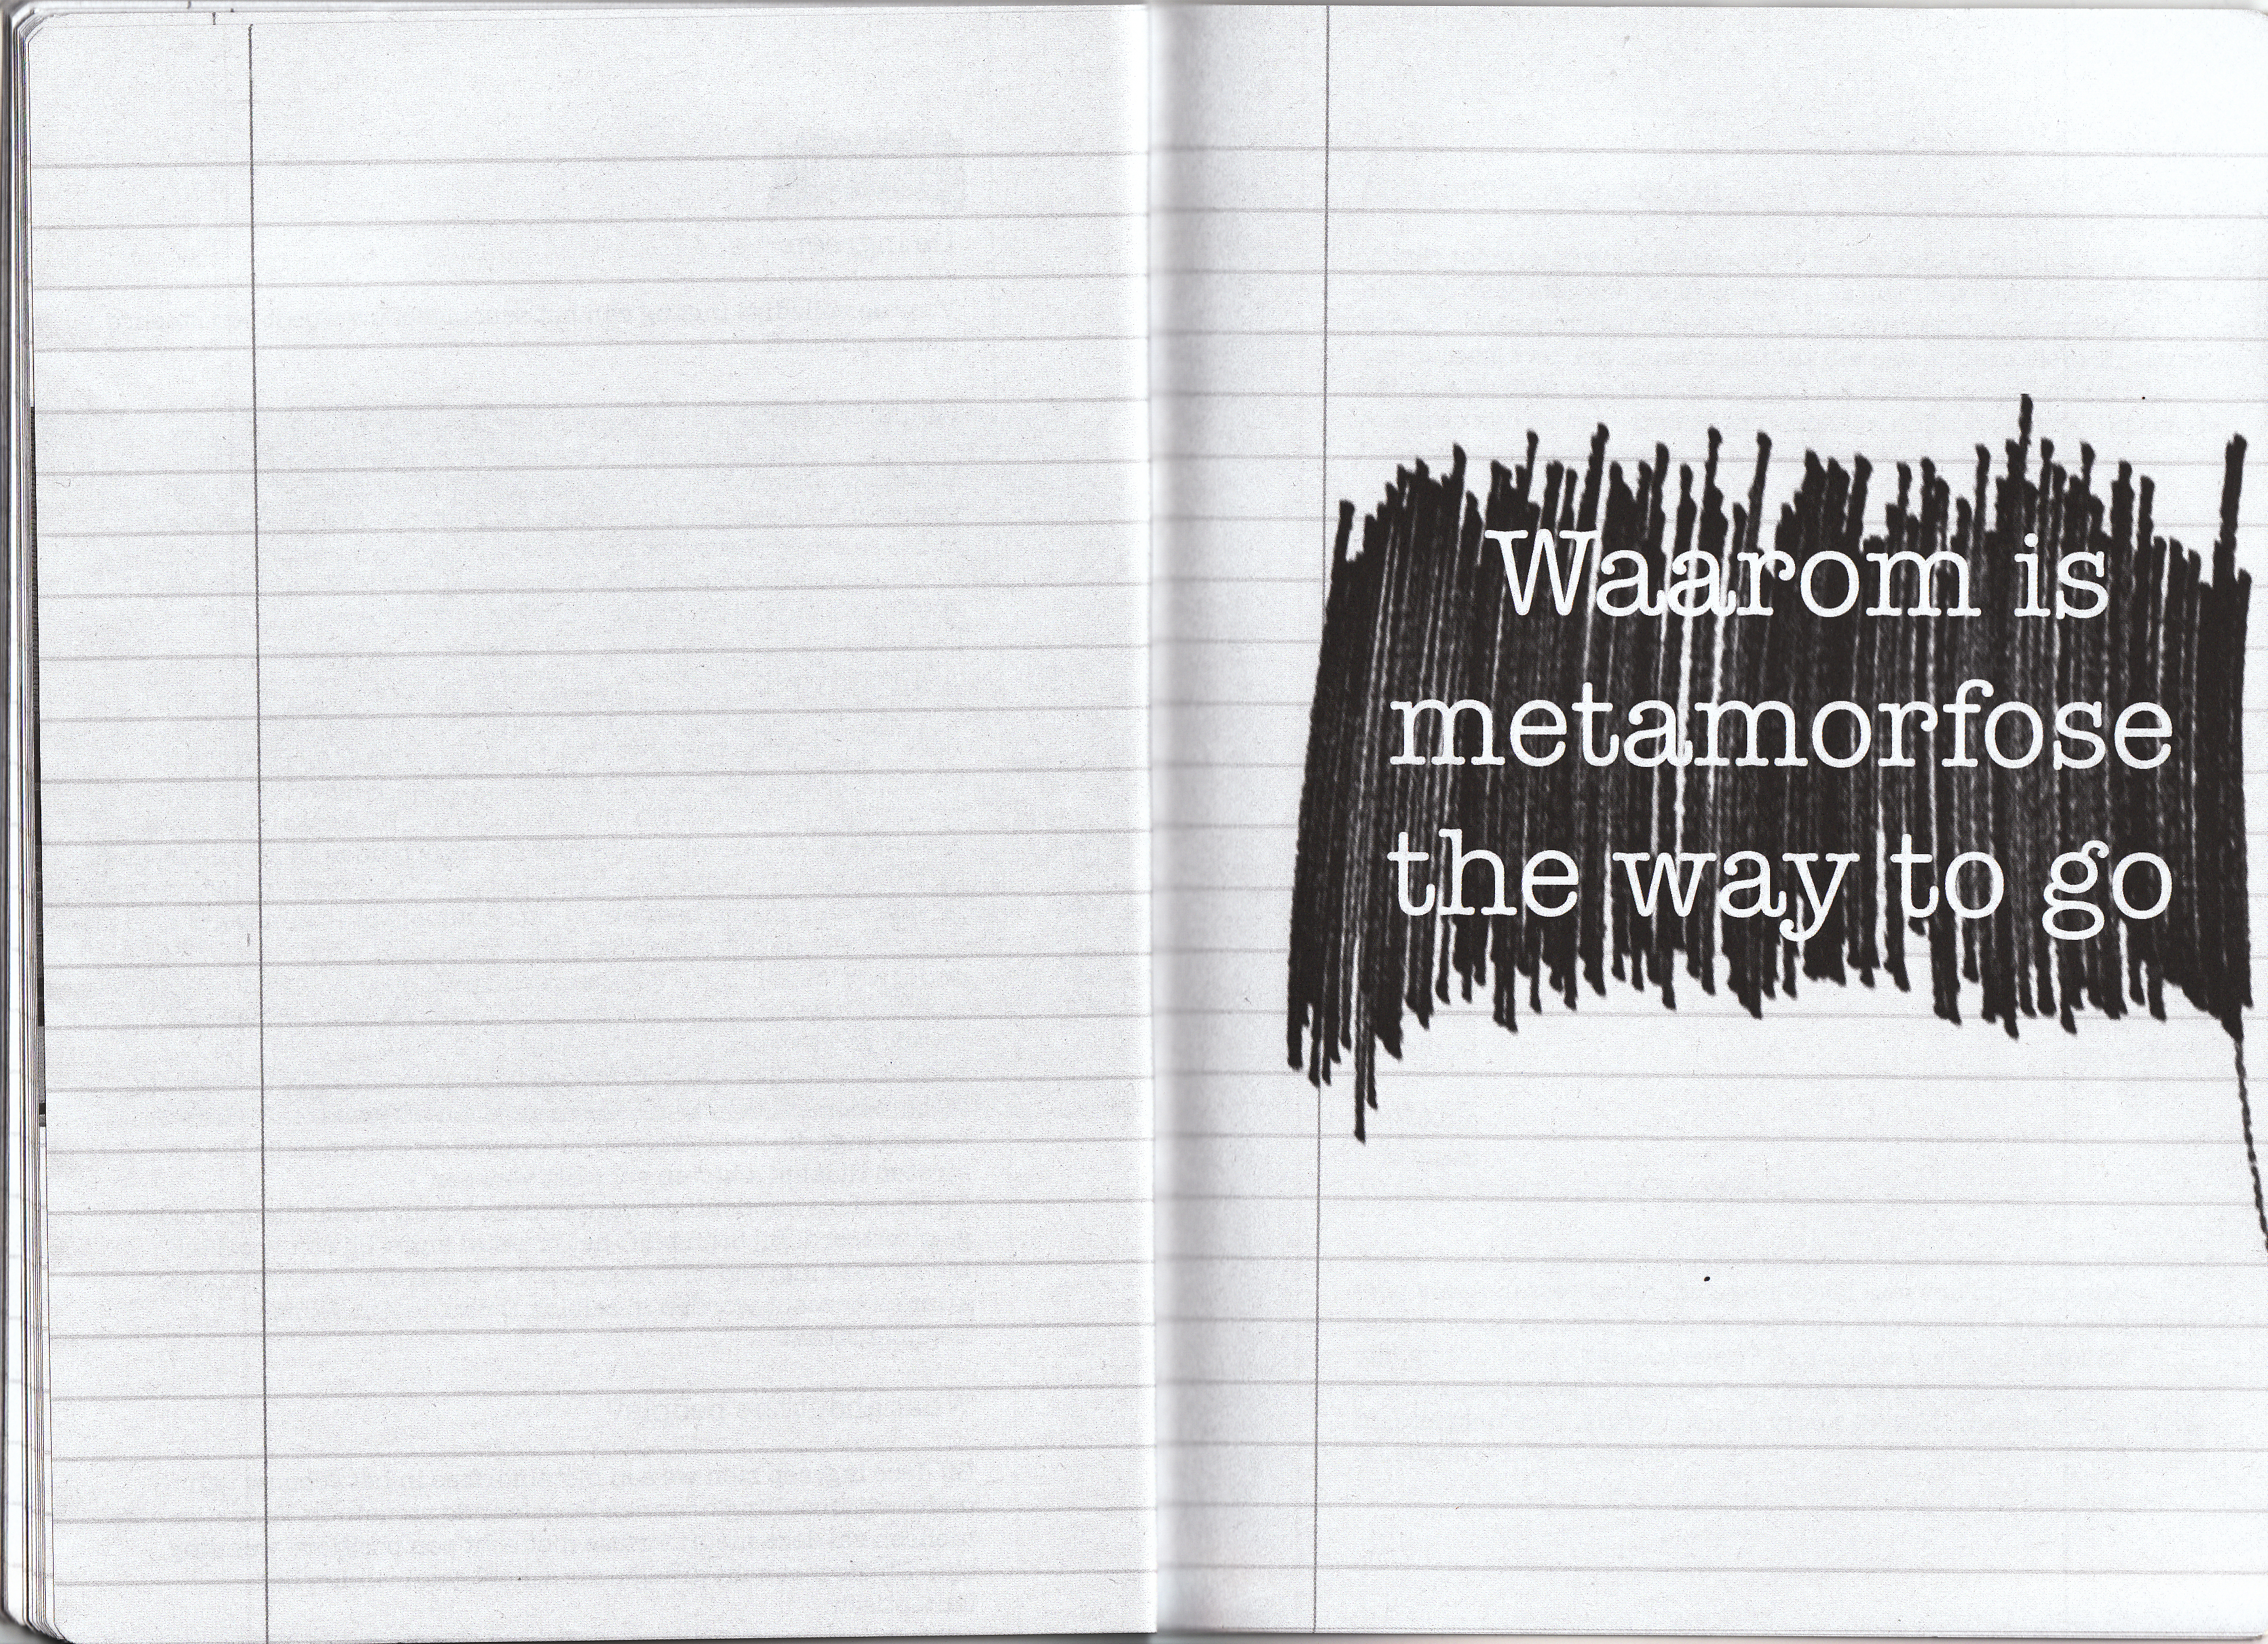 Waarom is
metamorfose
the way to go